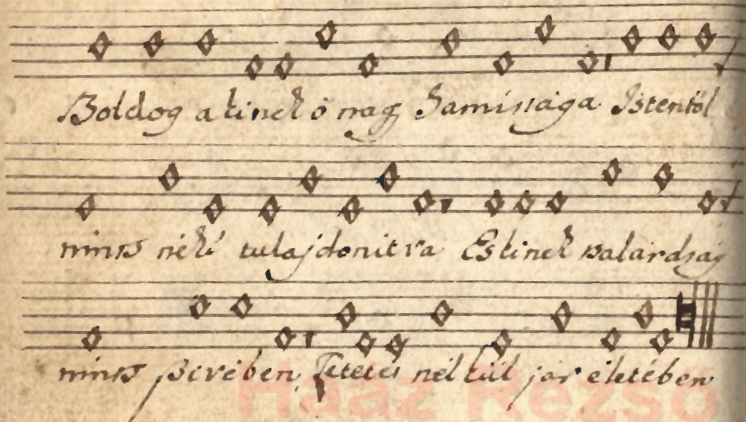 Boldog a kinek ő nag hamissága Istentöl
nints néki tulajdonitva Es kinek salárdság
nints szivében, Tetetés nélkül jár életében
Haáz Rezső